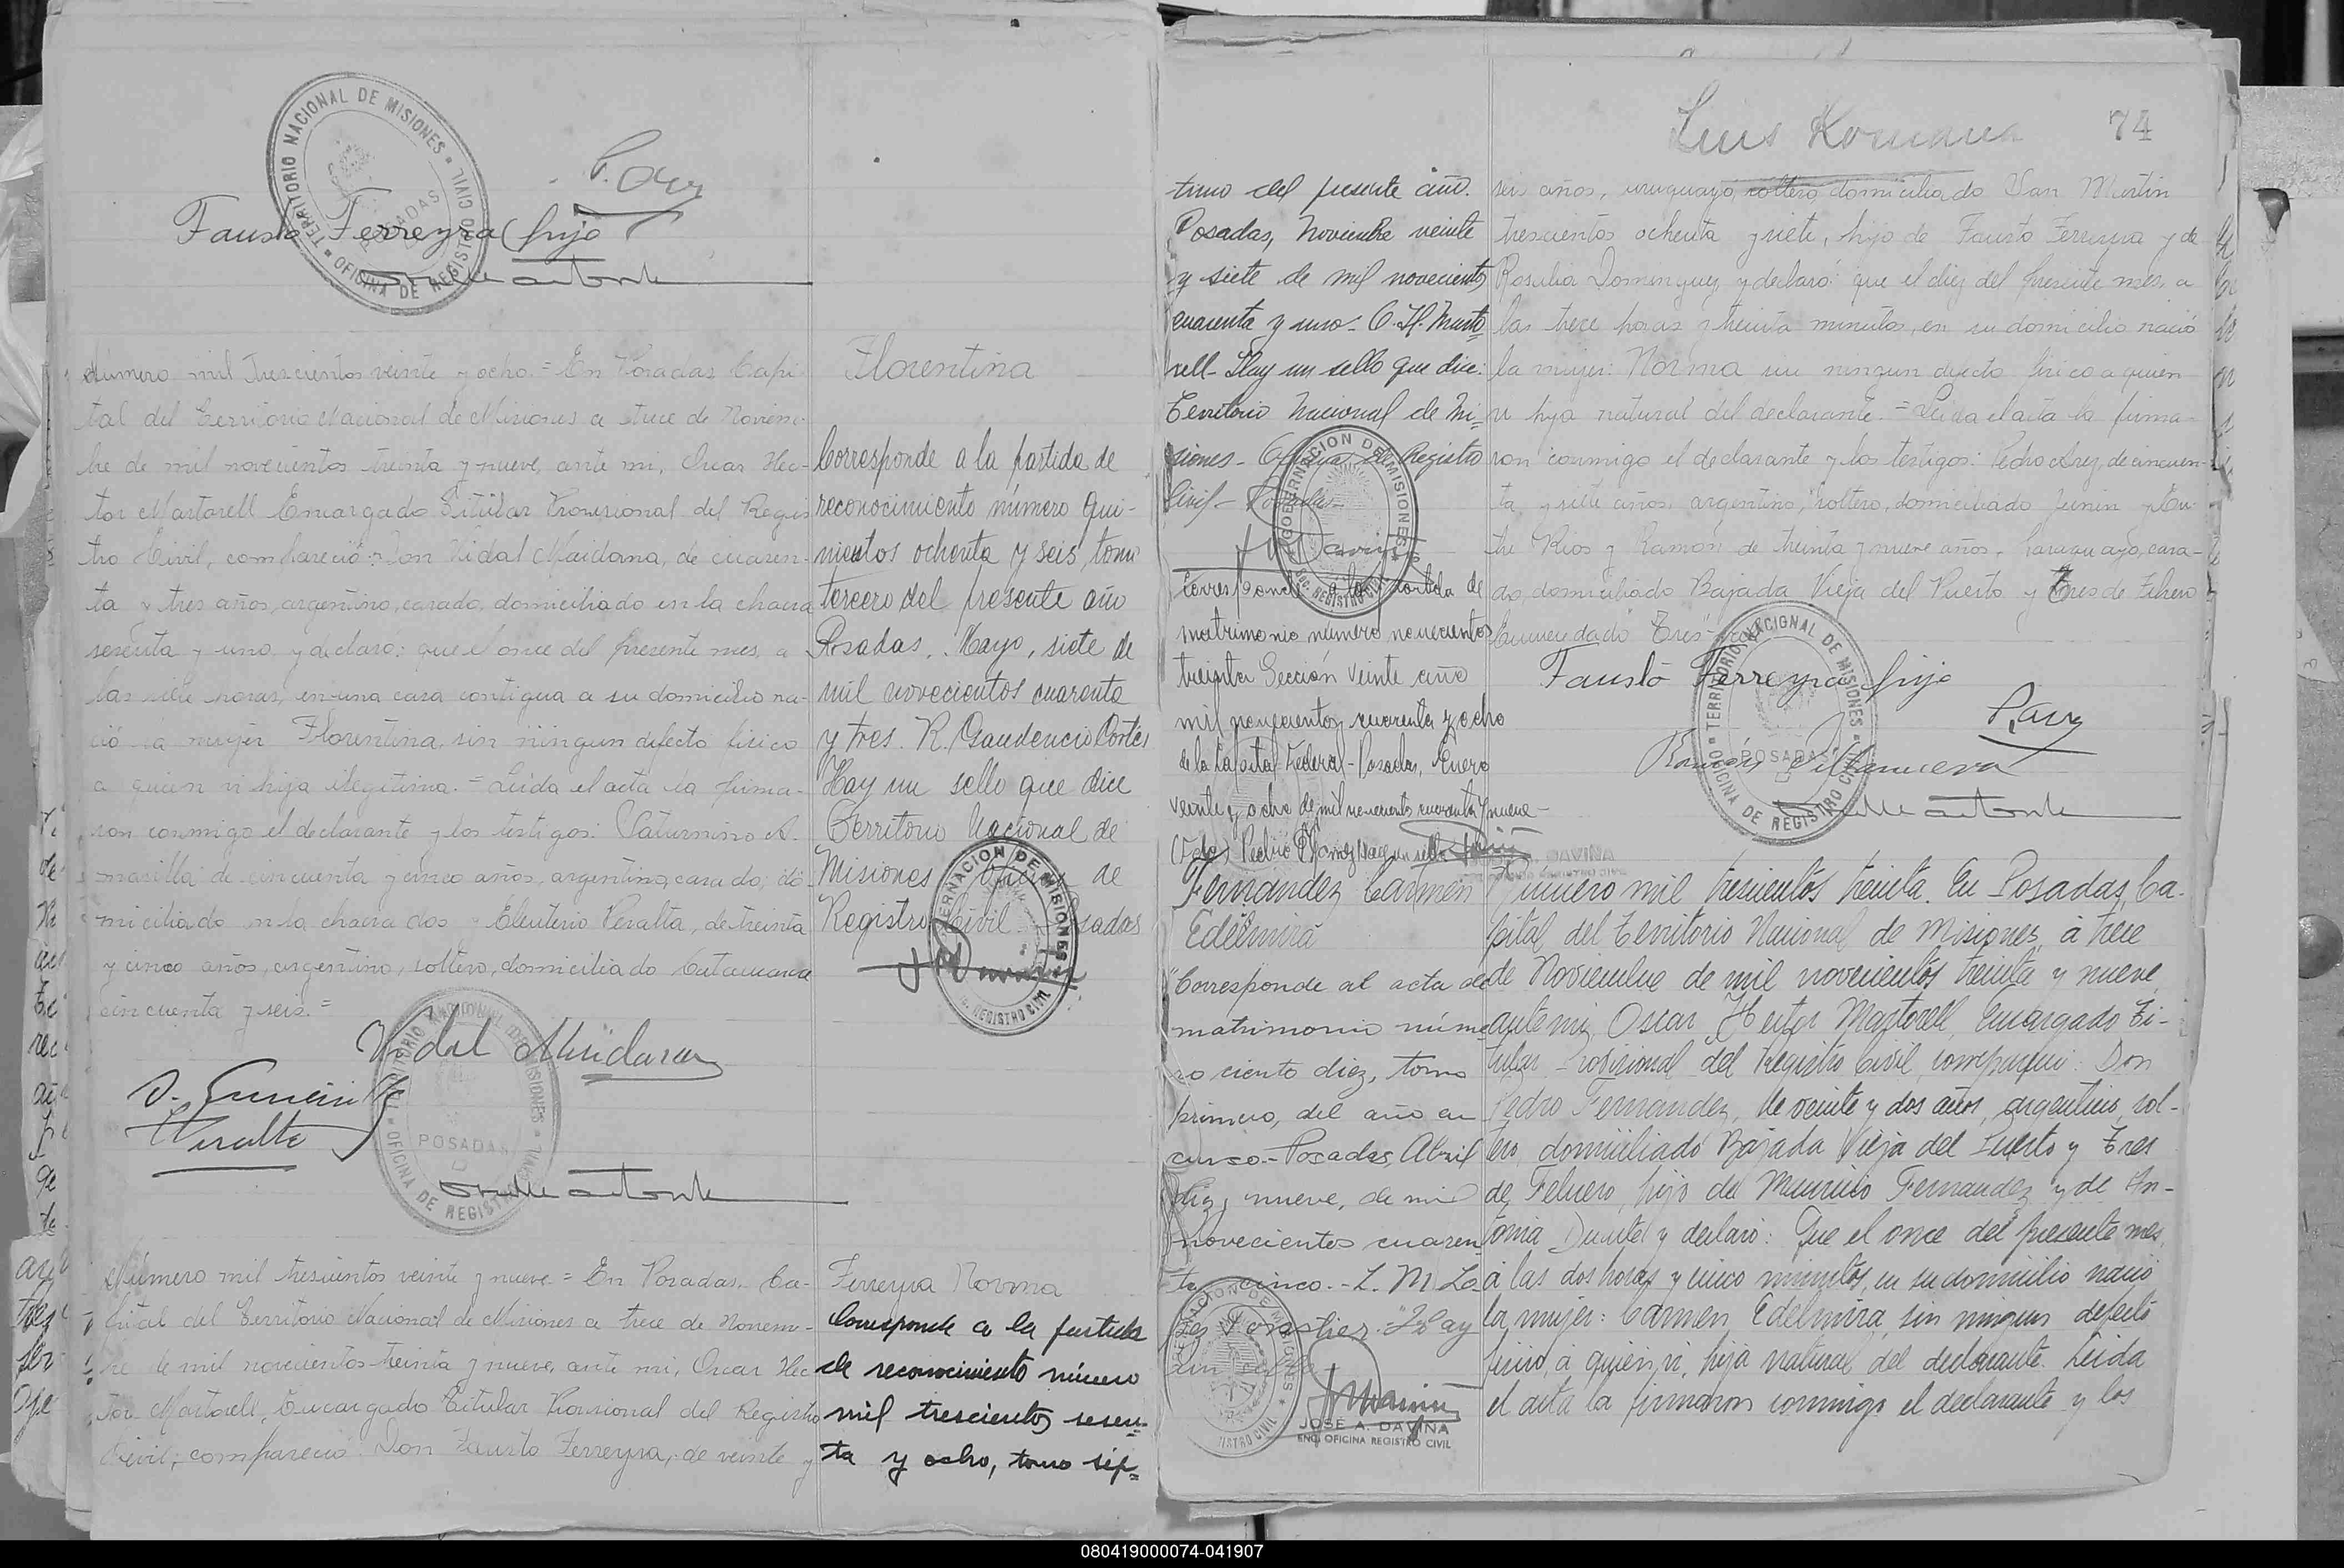 TERRITORIO NACIONAL DE MISIONES
OFICINA DE REGISTRO CIVIL
POSADAS
Fausto Ferreyra hijo
Número mil Trescientos veinte y ocho = En Posadas Capi-
tal del Territorio Nacional de Misiones a trece de Noviem-
bre de mil novecientos treinta y nueve, ante mi, Oscar Hec-
tor Martorell Encargado Titular Provisional del Regis
tro Civil, compareció: Don Vidal Maidana, de cuaren-
ta y tres años, argentino, casado, domiciliado en la chacra
sesenta y uno y declaró: que el once del presente mes, a
las siete horas, en una casa contigua a su domicilio na-
ció la mujer Florentina, sin ningun defecto fisico
a quien vi hija ilegitima. = Leida el acta la firma-
ron conmigo el declarante y los testigos: Saturnino A.
de cincuenta y cinco años, argentino, casado, do-
miciliado en la chacra dos y Eleuterio Peralta, de treinta
y cinco años, argentino, soltero, domiciliado Catamarca
cincuenta y seis. =
Vidal Maidana
Peralta
TERRITORIO NACIONAL DE MISIONES
OFICINA DE REGISTRO CIVIL
POSADAS
Número mil trescientos veinte y nueve = En Posadas, Ca-
pital del Territorio Nacional de Misiones a trece de Noviem-
bre de mil novecientos treinta y nueve, ante mi, Oscar Hec
tor Martorell, Encargado Titular Provisional del Registro
Civil, compareció: Don Fausto Ferreyra, de veinte y
Florentina
Corresponde a la partida de
reconocimiento número qui-
nientos ochenta y seis, tomo
tercero del presente año
Posadas, Mayo, siete de
mil novecientos cuarenta
y tres. R. Gaudencio Cortés
Hay un sello que dice
Territorio Nacional de
Misiones Oficina de
Registro Civil Posadas
GOBERNACION DE MISIONES
REGISTRO CIVIL
Ferreyra Norma
Corresponde a la partida
de reconocimiento número
mil trescientos sesen-
ta y ocho, tomo sép-
74
timo del presente año.
Posadas, Noviembre veinte
y siete de mil novecientos
cuarenta y uno. O. H. Marto
rell- Hay un sello que dice:
Territorio Nacional de Mi-
siones- Oficina de Registro
Civil- Posadas-
GOBERNACION DE MISIONES
REGISTRO CIVIL
Corresponde a la partida de
matrimonio número novecientos
treinta Sección veinte año
mil novecientos cuarenta y ocho
de la Capital Federal- Posadas, Enero
veinte y ocho de mil novecientos cuarenta y nueve-
Fernández Carmen
Edelmira
"Corresponde al acta de
matrimonio núme
ro ciento diez, tomo
primero, del año en
curso.- Posadas, Abril
diez y nueve, de mil
novecientos cuaren
ta y cinco.- L. M. Ló
pez Forastier. "Hay
un sello
GOBERNACION DE MISIONES
REGISTRO CIVIL
JOSÉ A. DAVIÑA
ENC. OFICINA REGISTRO CIVIL
Luis Romana
seis años, uruguayo, soltero, domiciliado San Martin
trescientos ochenta y siete, hijo de Fausto Ferreyra y de
Rosalia Dominguez y declaró: que el diez del presente mes, a
las trece horas y treinta minutos, en su domicilio nació
la mujer: Norma sin ningun defecto fisico a quien
vi hija natural del declarante. = Leida el acta la firma-
ron conmigo el declarante y los testigos: Pedro Arez, de cincuen-
ta y siete años, argentino, soltero, domiciliado Junin y En-
tre Rios y Ramón de treinta y nueve años, paraguayo, casa-
do domiciliado Bajada Vieja del Puerto y Tres de Febrero
Enmendado "Tres"
Fausto Ferreyra hijo
Ramón Villanueva
TERRITORIO NACIONAL DE MISIONES
OFICINA DE REGISTRO CIVIL
POSADAS
Número mil trescientos treinta. En Posadas, Ca-
pital del Territorio Nacional de Misiones, á trece
de Noviembre de mil novecientos treinta y nueve,
ante mi, Oscar Hector Martorell, Encargado Ti-
tular Provisional del Registro Civil, compareció: Don
Pedro Fernandez, de veinte y dos años, argentino, sol-
tero, domiciliado Bajada Vieja del Puerto y Tres
de Febrero, hijo de Mauricio Fernandez y de An-
tonia Duarte y declaró: Que el once del presente mes
á las dos horas y cinco minutos, en su domicilio nació
la mujer: Carmen Edelmira, sin ningun defecto
fisico, á quien vi, hija natural del declarante. Leida
el acta la firmaron conmigo el declarante y los
080419000074-041907